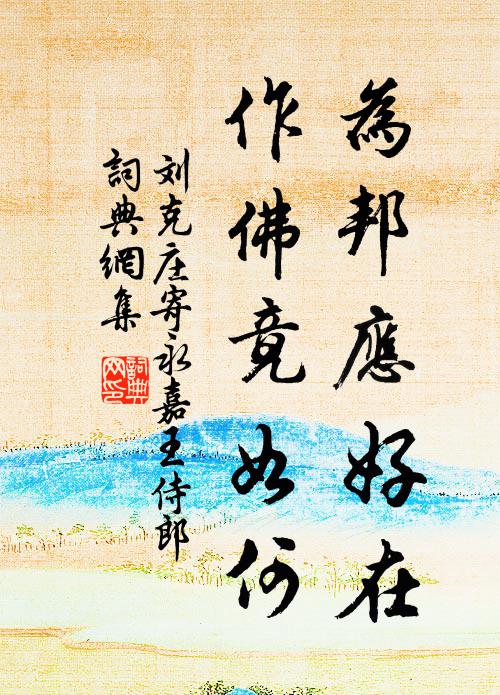 為邦應好在
作佛竟如何
刘克庄寄永嘉王侍郎
詞典網集
詞典
网印